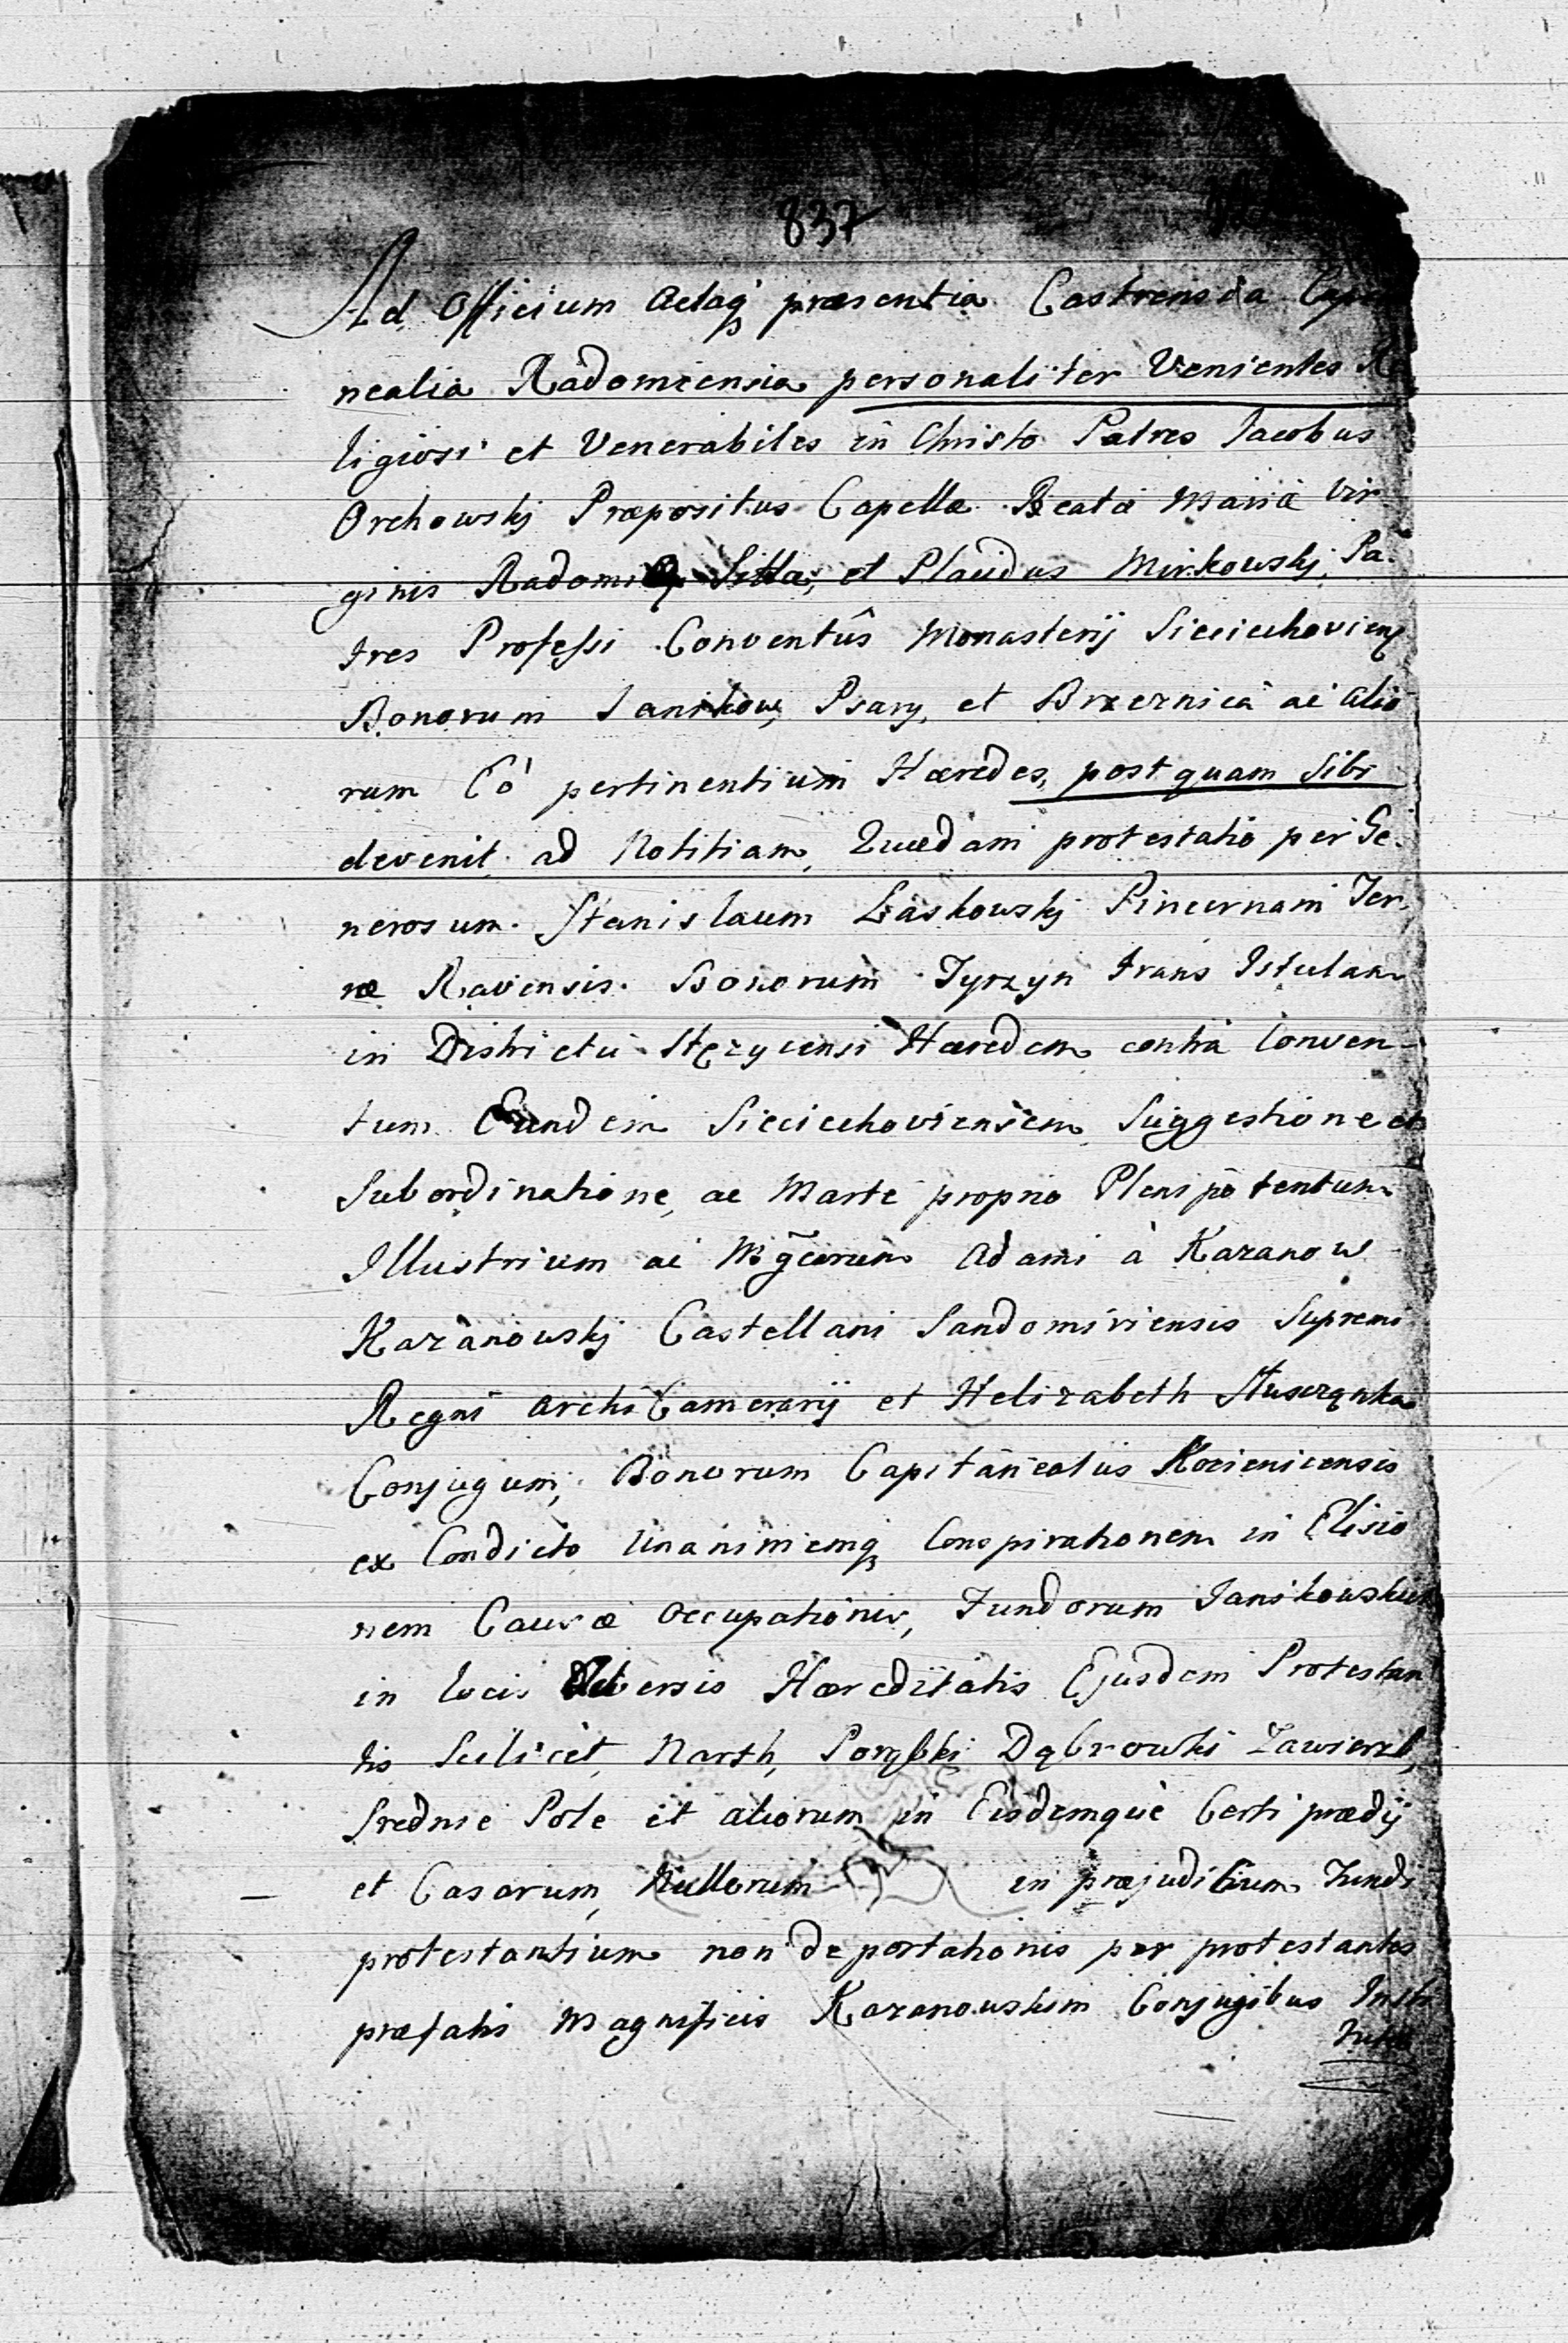 837
Ad Officium Actaq́ præsentia Castrensia Cap
nealia Radomiensia personaliter Venientes Re
ligiosi et Venerabiles in Christo Patres Jacobus
Orchowskj Præpositus Capellæ Beatæ Mariæ Vir
ginis Radomi Sittæ, et Placidus Mirkowskj, Pa
tres Professi Conventûs Monasterij Sieciechoviens
Bonorum Janikow, Psary, et Brzeznica ac alio
rum Eó pertinentium Hæredes, post quam Sibi
devenit ad Notitiam, Quædam protestatio per Ge
nerosum Stanislaum Laskowskj Pincernam Ter
ræ Ravensis Bonorum Tyrzyn trans Istulam
in Districtu Stęzycensi Hæredem contra Conven
tum Eundem Sieciechoviensem Suggestione et
Subordinatione, ac Marte proprio Plenipotentum
Illustrium ac Mg̃corum Adami à Kazanow
Kazanowskj Castellani Sandomiriensis Supremi
Regni Archi Camerarij et Helizabeth Słuszqnka
Conjugum, Bonorum Capitaneatus Kozienicensis
ex Condicto Unanimiemq́ Conspirationem in Elisio
nem Causæ Occupationis, Fundorum Janikowskich
in locis diversis Hæreditatis Ejusdem Protestan
tis Scilicet, Narth, Porębki Dąbrowki Zawierzb,
Srednie Pole et aliorum in Eisdemque Certi prædij
et Casarum, Nullorum in præjudicium Fundi
protestantium non deportationis per protestantes
præfatis Magnificis Kazanowskim Conjugibus